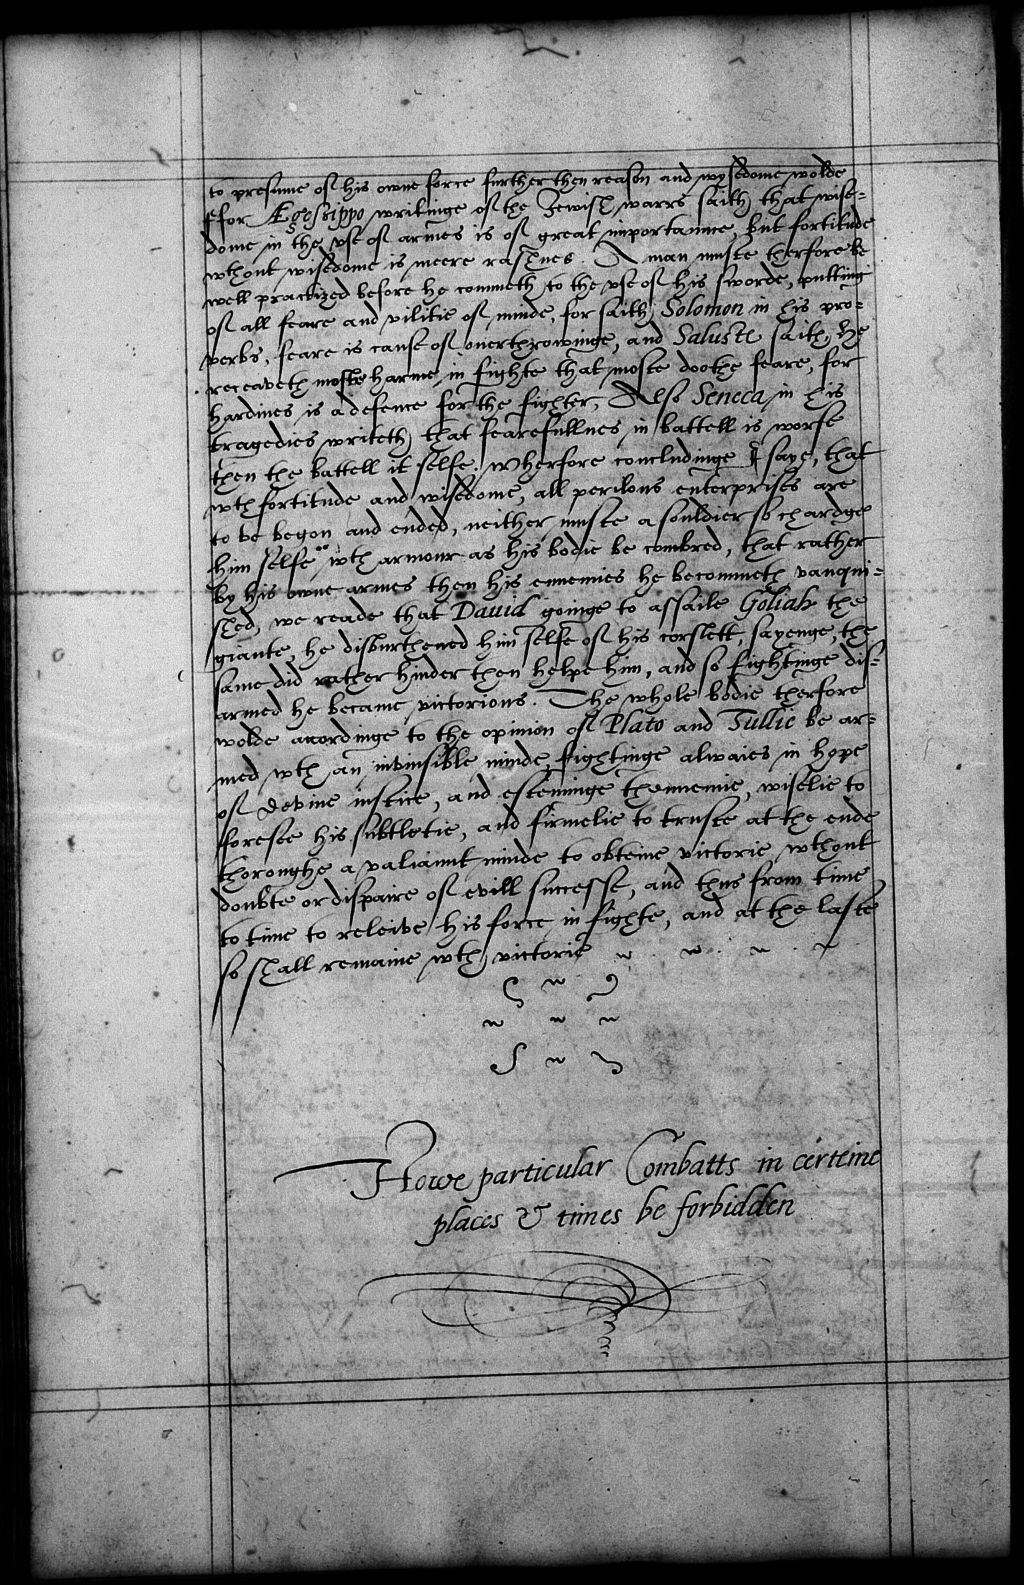 to presume of his owne force further then reason and wysedome wolde
ffor Ægesippo writinge of the Jewish warrs saith, that wise-
dome in the vse of armes is of great importaunce, but fortitude
wthout wisedome is meere rashnes. A man muste therfore be
well practized before he commeth to the vse of his sworde, putting
of all feare and vilitie of minde, for saith Solomon in his pro-
verbs, feare is cause of overthrowinge, and Saluste saith, he
receaveth moste harme in fighte that moste doothe feare, for
hardines is a defence for the fighter, Also Seneca in his
tragedies writeth that fearefullnes in battell is worse
then the battell it selfe. Wherfore concludinge I saye, that
wth fortitude and wisedome, all perilous enterprises are
to be begon and ended, neither muste a souldier so chardge
him selfe wth armour as his bodie be combred, that rather
by his owne armes then his ennemies he becommeth vanqui-
shed, we reade that Dauid goinge to assaile Goliah the
giante, he disburthened him selfe of his corslett, sayenge, the
same did rather hinder then helpe him, and so fightinge dis-
armed he became victorious. The whole bodie therfore
wolde accordinge to the opinion of Plato and Tullie be ar-
med wth an invinsible minde, fightinge alwaies in hope
of devine iustice, and esteminge thennemie, wiselie to
foresee his subtletie, and firmelie to truste at the ende
thoroughe a valiaunt minde to obteine victorie wthout
doubte or dispaire of evill successe, and thus from time
to time to releive his force in fighte, and at the laste
so shall remaine wth victorie
Howe particular Combatts in certeine
places & times be forbidden